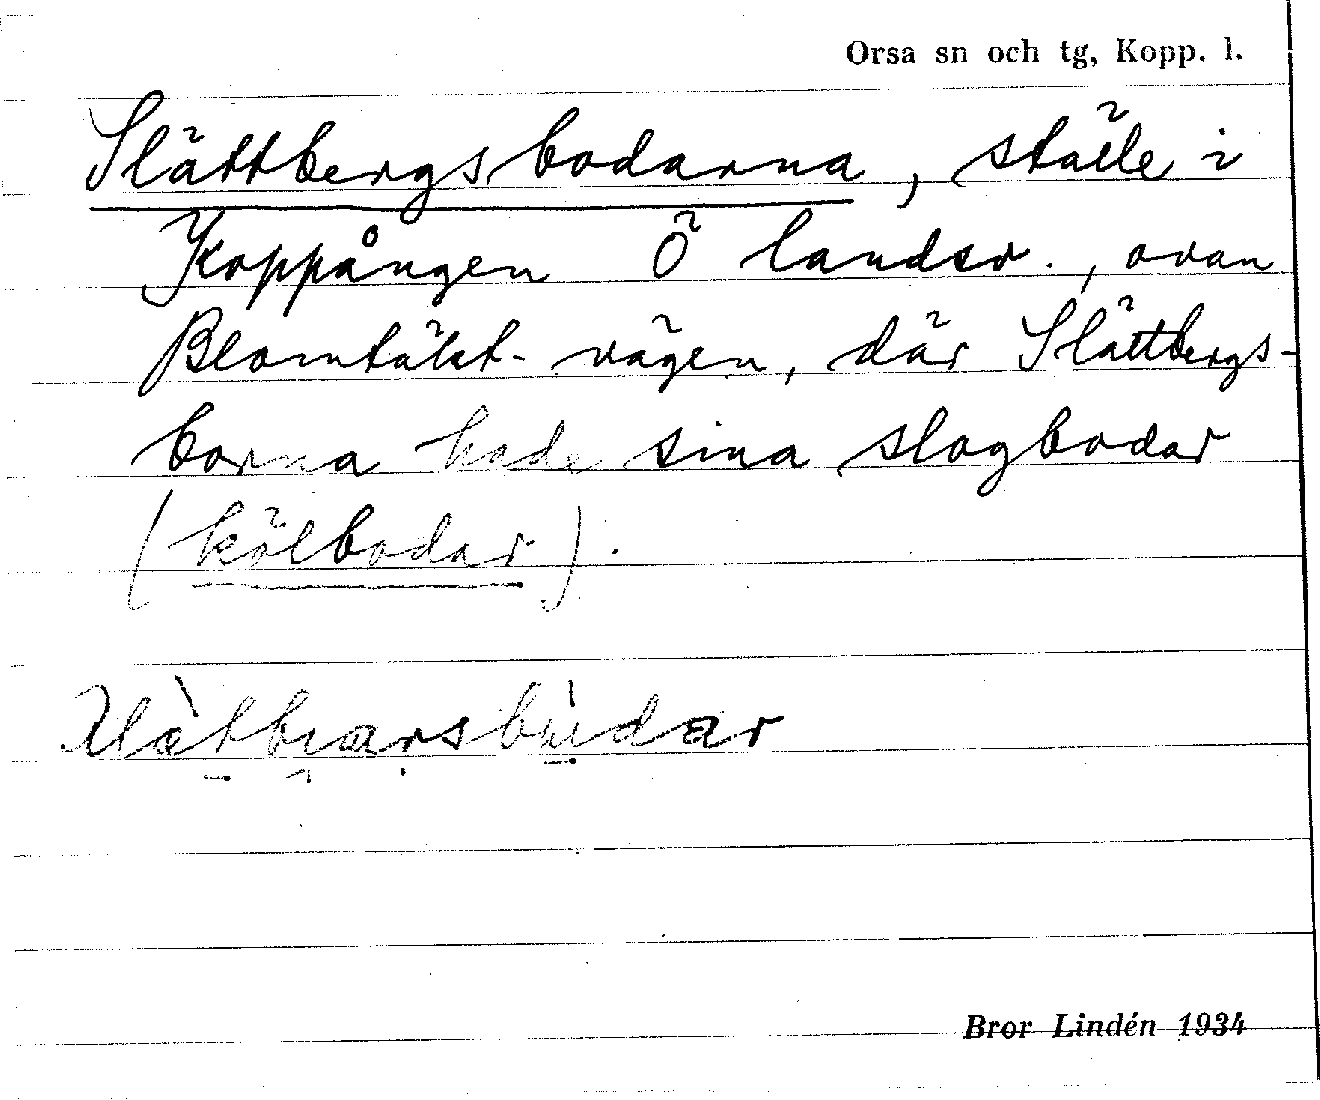 Orsa sn och tg, Kopp. l.
Slättbergsbodarna, ställe i
Koppången Ö landsv., ovan
Blomtäkt-vägen, där Slättbergs-
borna hade sina slogbodar
(kölbodar).
Bror Lindén 1934